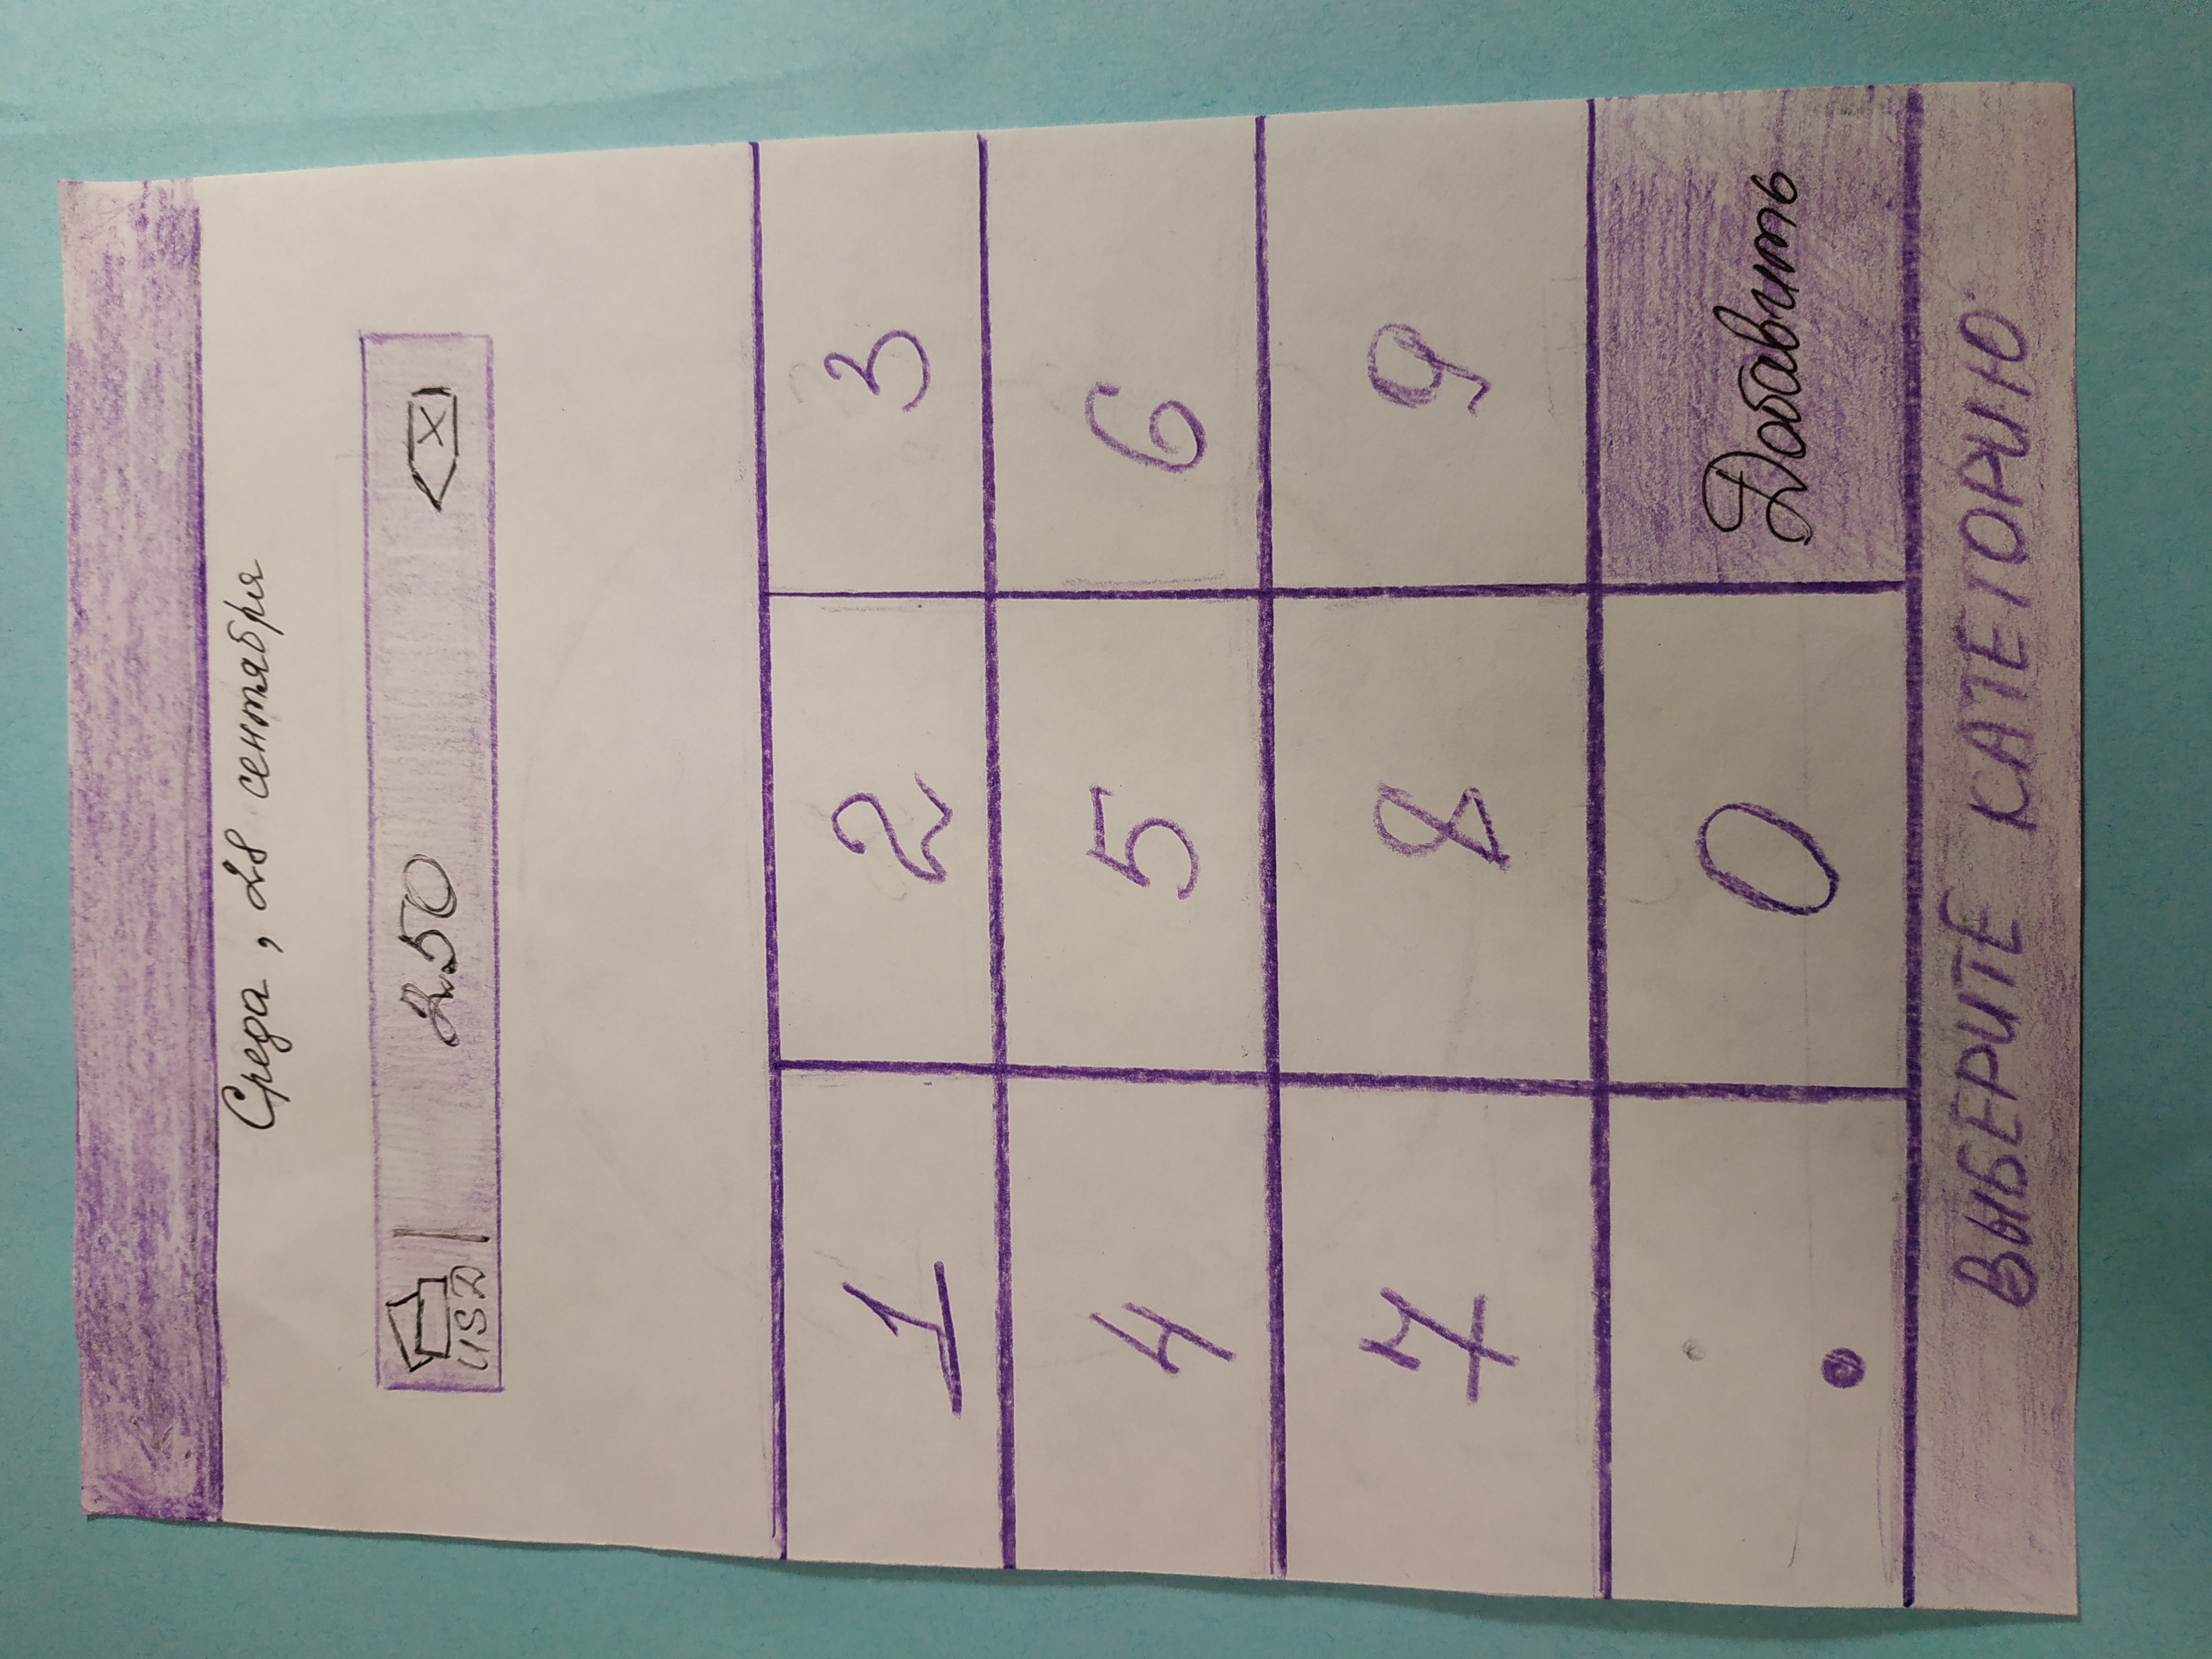 Среда, 28 сентября
250
USD
1 2 3
4 5 6
7 8 9
. 0 Добавить
ВЫБЕРИТЕ КАТЕГОРИЮ